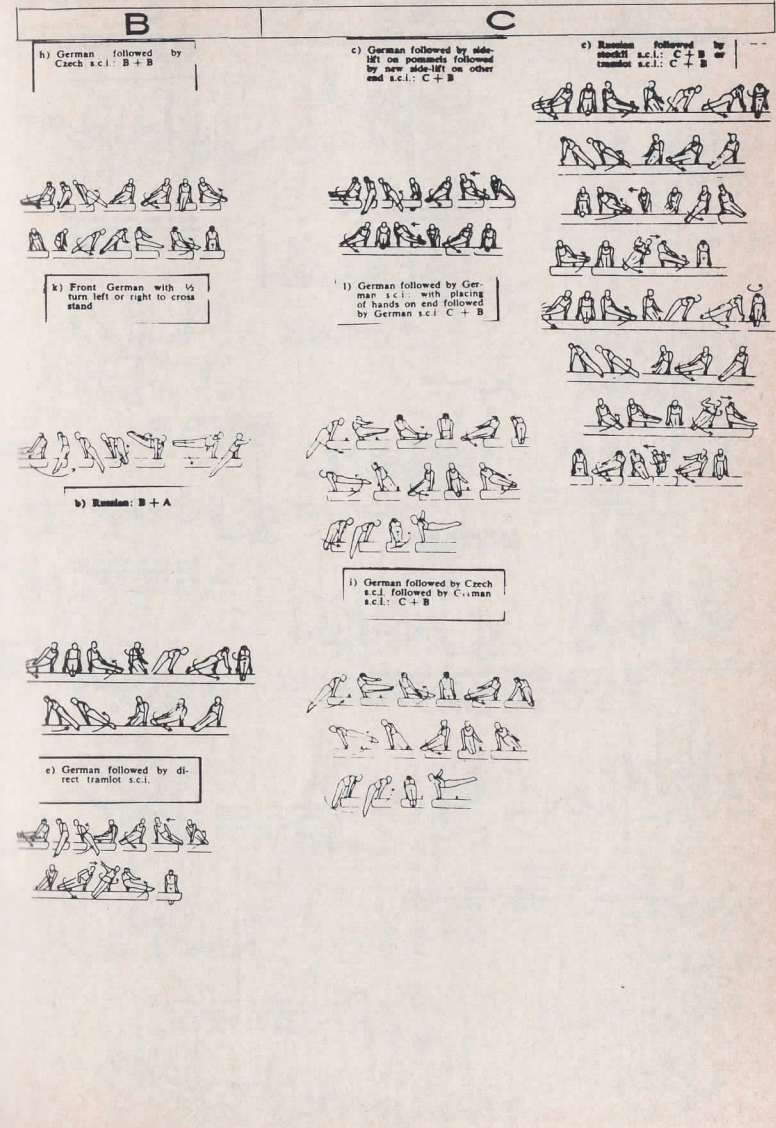 B
C
h) German followed by
Czech s.c.i.: B + B
k) Front German with ½
turn left or right to cross
stand
b) Russian: B + A
e) German followed by di-
rect tramlot s.c.i.
c) German followed by side-
lift on pommels followed
by new side-lift on other
end s.c.i.: C + B
l) German followed by Ger-
man s.c.i: with placing
of hands on end followed
by German s.c.i C + B
i) German followed by Czech
s.c.i. followed by German
s.c.i.: C + B
c) Russian followed by
stockli s.c.i.: C + B or
tramlot s.c.i.: C + B